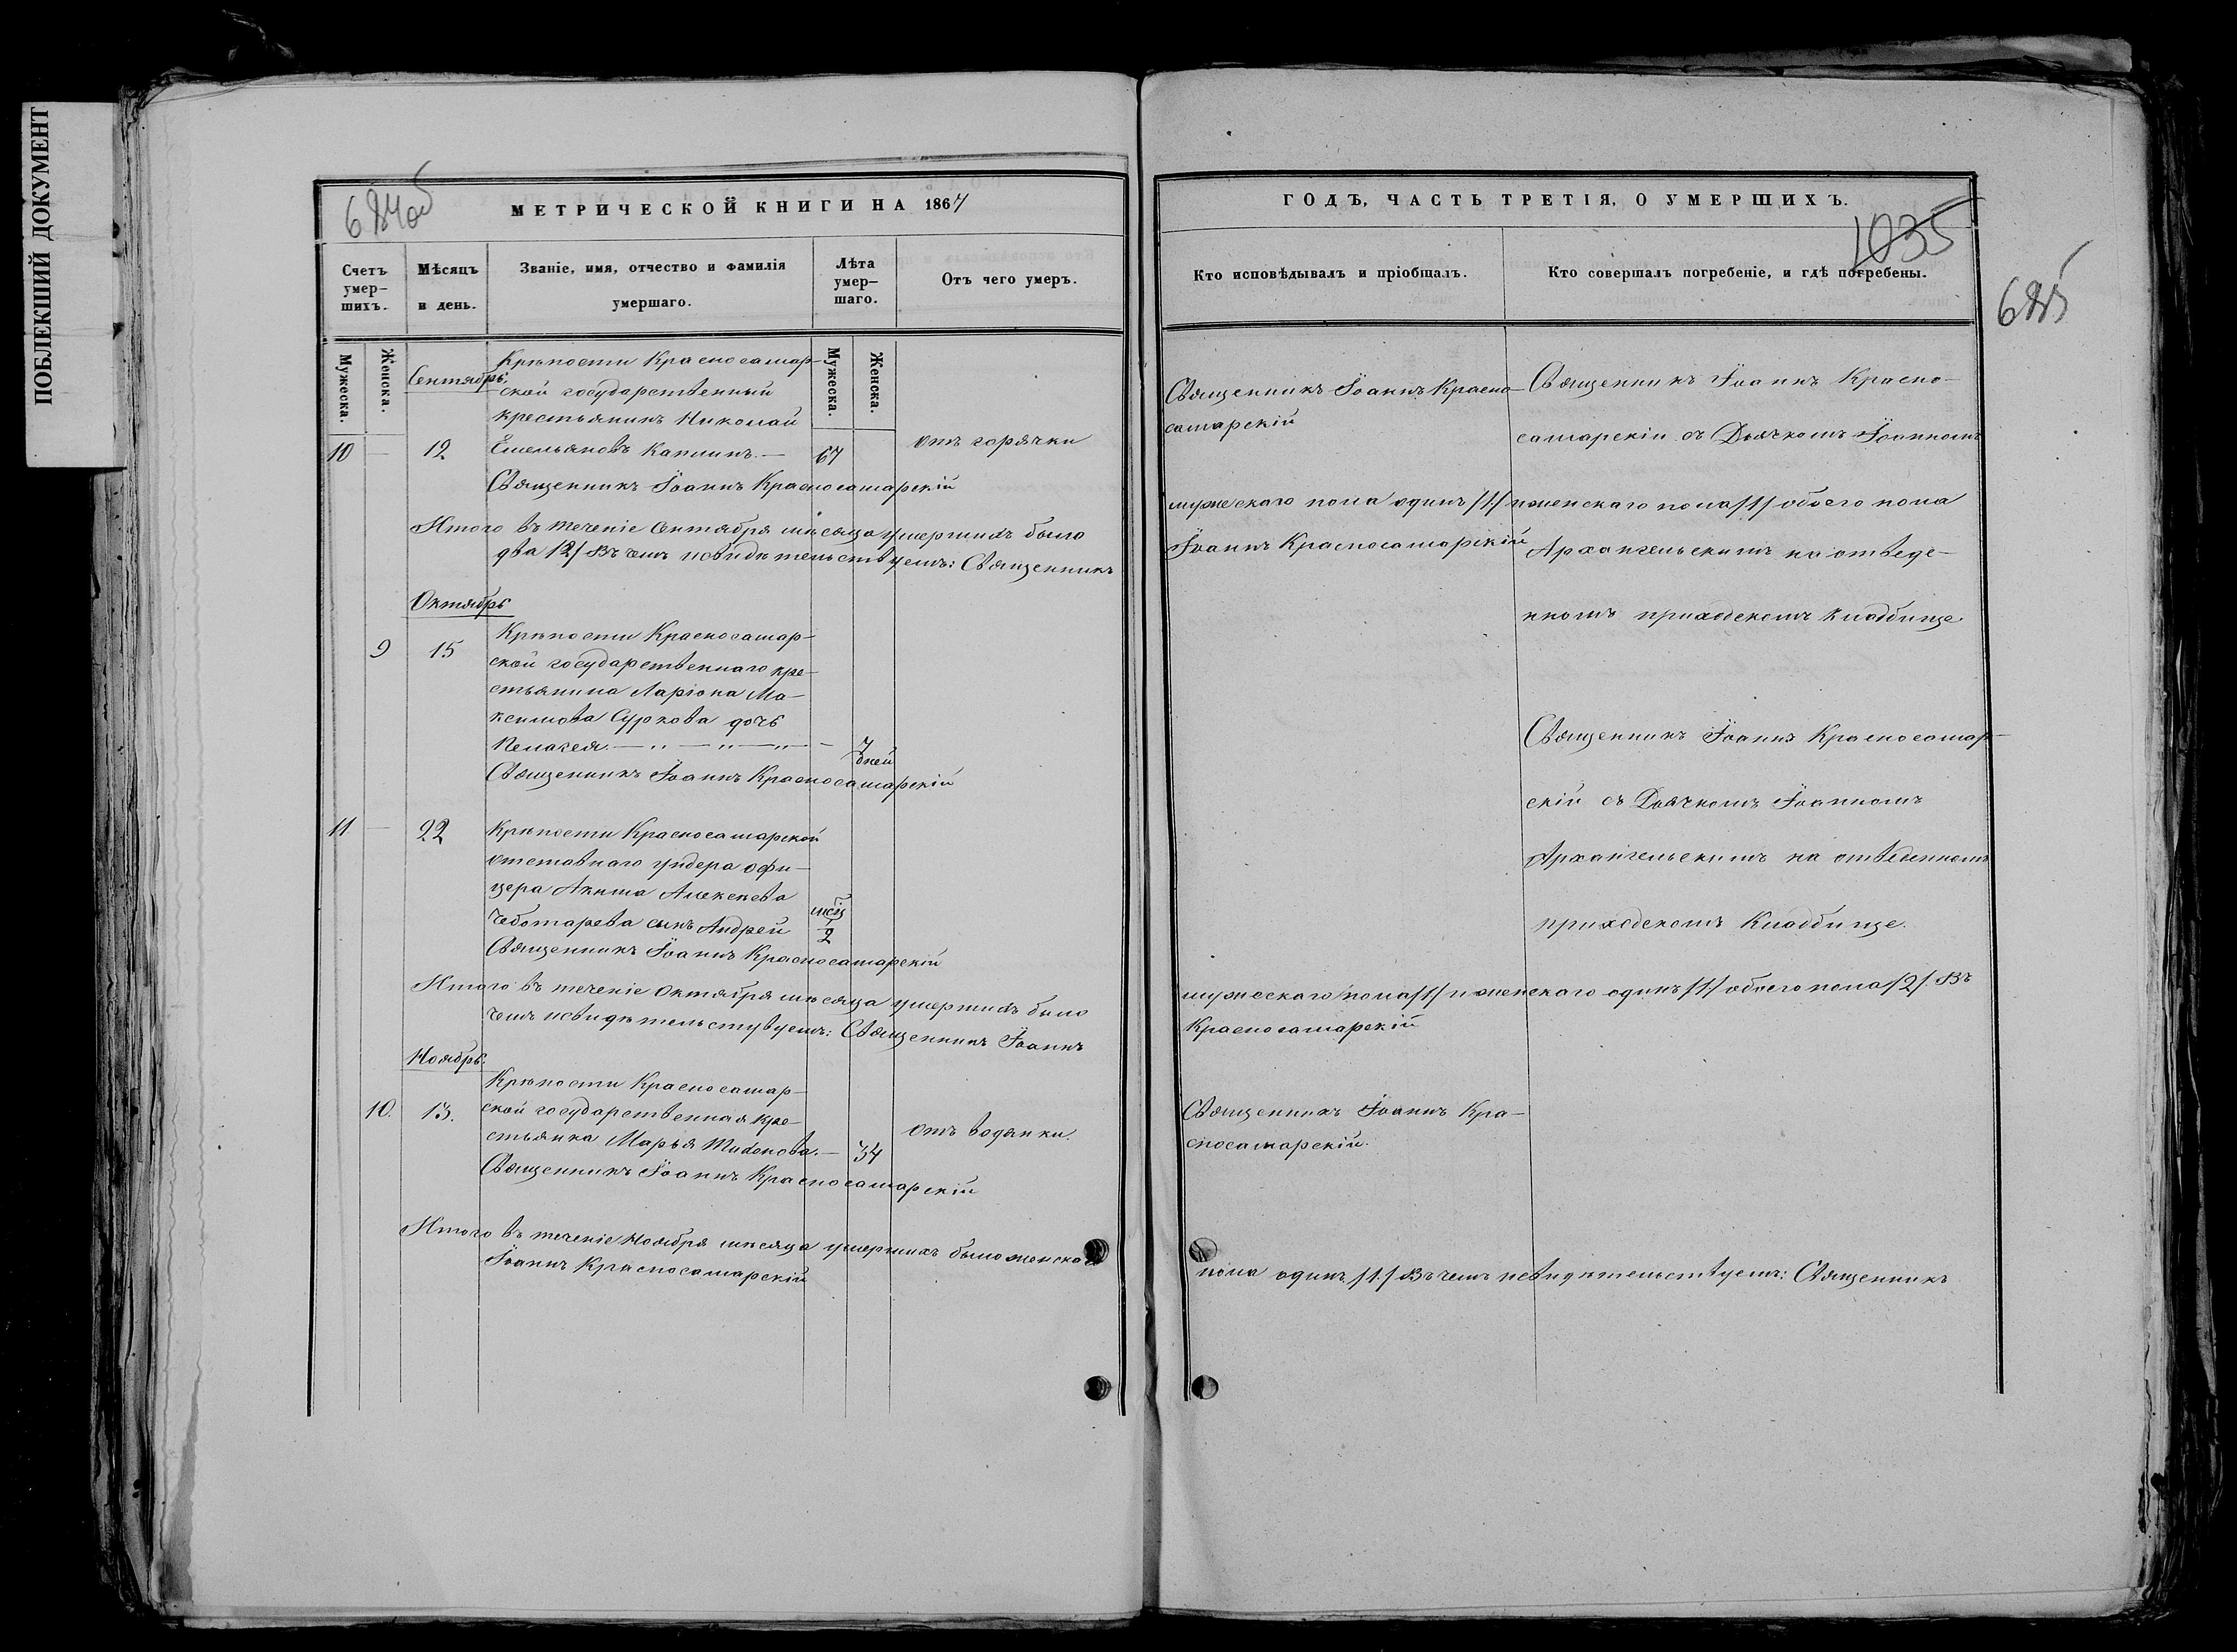 ПОБЛЕКШИЙ ДОКУМЕНТ
684об
МЕТРИЧЕСКОЙ КНИГИ НА 1867
Счетъ умер-шихъ.
Мѣсяцъ и день.
Званіе, имя, отчество и фамилія умершаго.
Лѣта умер-шаго.
Отъ чего умеръ.
Мужеска.
Женска.
Мужеска.
Женска.
Сентябрь.
Крѣпости Красносамар-
ской государственный
крестьянинъ Николай
10 — 12 Емельяновъ Каплинъ. — 67 отъ горячки
Священникъ Іоаннъ Красносамарскій
Итого въ теченіе Сентября мѣсяца умершихъ было
два /2/ Въ чемъ исвидѣтельствуемъ: Священникъ
Октябрь
Крѣпости Красносамар-
9 15 ской государственнаго кре-
стьянина Ларіона Ма-
ксимова Суркова дочь
Пелагея. — „ — „ — „ — 7 дней
Священникъ Іоаннъ Красносамарскій
11 — 22 Крѣпости Красносамарской
отставнаго ундера офи-
цера Акима Алексѣева
Чеботарева сынъ Андрей мѣсц 2
Священникъ Іоаннъ Красносамарскій
Итого въ теченіе Октября мѣсяца умершихъ было
чемъ исвидѣтельствуемъ: Священникъ Іоаннъ
Ноябрь.
Крѣпости Красносамар-
10. 13. ской государственная кре-
стьянка Марья Тихонова. — 34 отъ водянки.
Священникъ Іоаннъ Красносамарскій
Итого въ теченіе Ноября мѣсяца умершихъ было женска
Іоаннъ Красносамарскій
ГОДЪ, ЧАСТЬ ТРЕТІЯ, О УМЕРШИХЪ.
1035
685
Кто исповѣдывалъ и пріобщалъ.
Кто совершалъ погребеніе, и гдѣ погребены.
Священникъ Іоаннъ Красно-
самарскій
Священникъ Іоаннъ Красно-
самарскій съ Дьячкомъ Іоанномъ
мужескаго пола одинъ /1/ и женскаго пола /1/ обоего пола
Іоаннъ Красносамарскій
Архангельскимъ на отведе-
нномъ приходскомъ кладбище
Священникъ Іоаннъ Красносамар-
скій съ Дьячкомъ Іоанномъ
Архангельскимъ на отведенномъ
приходскомъ Кладбище.
мужескаго пола /1/ и женскаго одинъ /1/ обоего пола /2/. Въ
Красносамарскій
Священникъ Іоаннъ Кра-
сносамарскій.
пола одинъ /1./ Въ чемъ исвидѣтельствуемъ: Священникъ